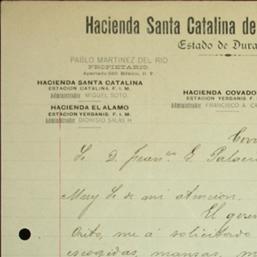 Hacienda Santa Catalina de
Estado de Dura
PABLO MARTINEZ DEL RIO
PROPIETARIO.
Apartado 560. México, D. F.
HACIENDA SANTA CATALINA
ESTACION CATALINA. F. I. M.
Administrador MIGUEL SOTO.
HACIENDA EL ALAMO
ESTACION YERBANIS. F. I. M.
Administrador DIONISIO SALAS H
HACIENDA COVADO
ESTACION YERBANIS. F.
Administrador FRANCISCO A. C
Cova
Sr. D. Fran.co G. Palaci
Muy Sr. de mi atencion.
El geren
me á solicitado
escogidas, mansas, m